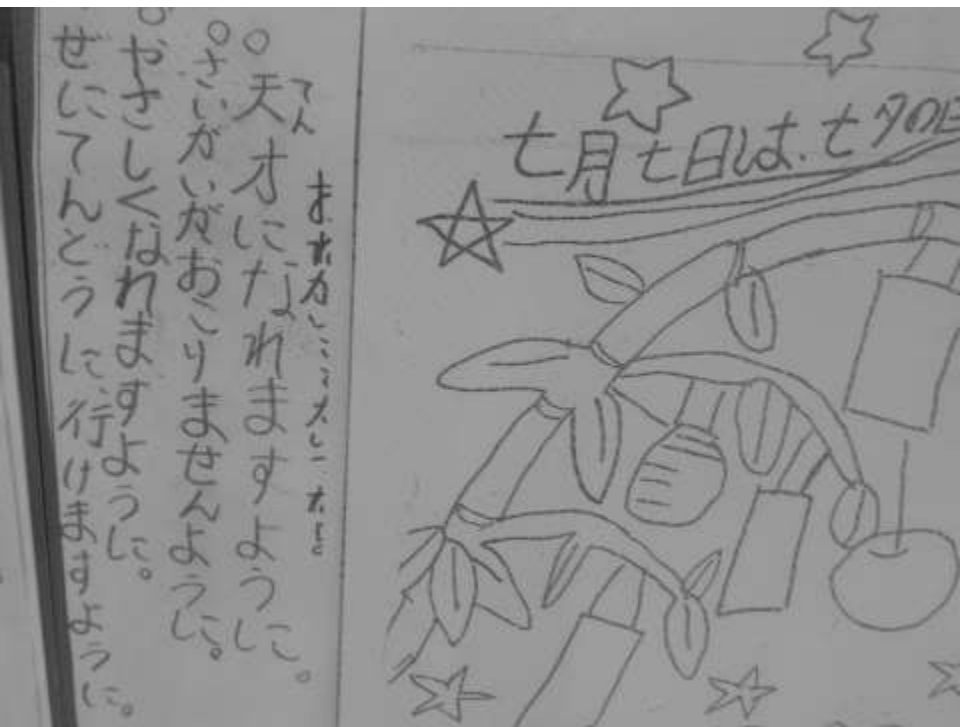 七月七日は、七夕の日
○天才になれますように。
てん
○さいがいがおこりませんように。
○やさしくなれますように。
ぜいにてんどうに行けますように。